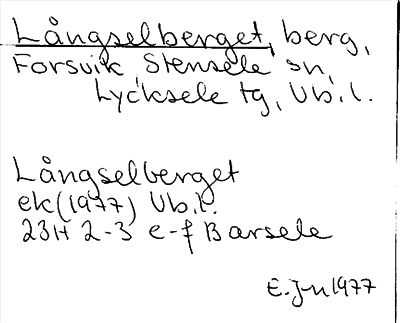 Långselberget, berg,
Forsvik, Stensele sn,
Lycksele tg, Vb.l.
Långselberget
ek(1977) Vb.l.
23H 2-3 e-f Barsele
E. Jn 1977